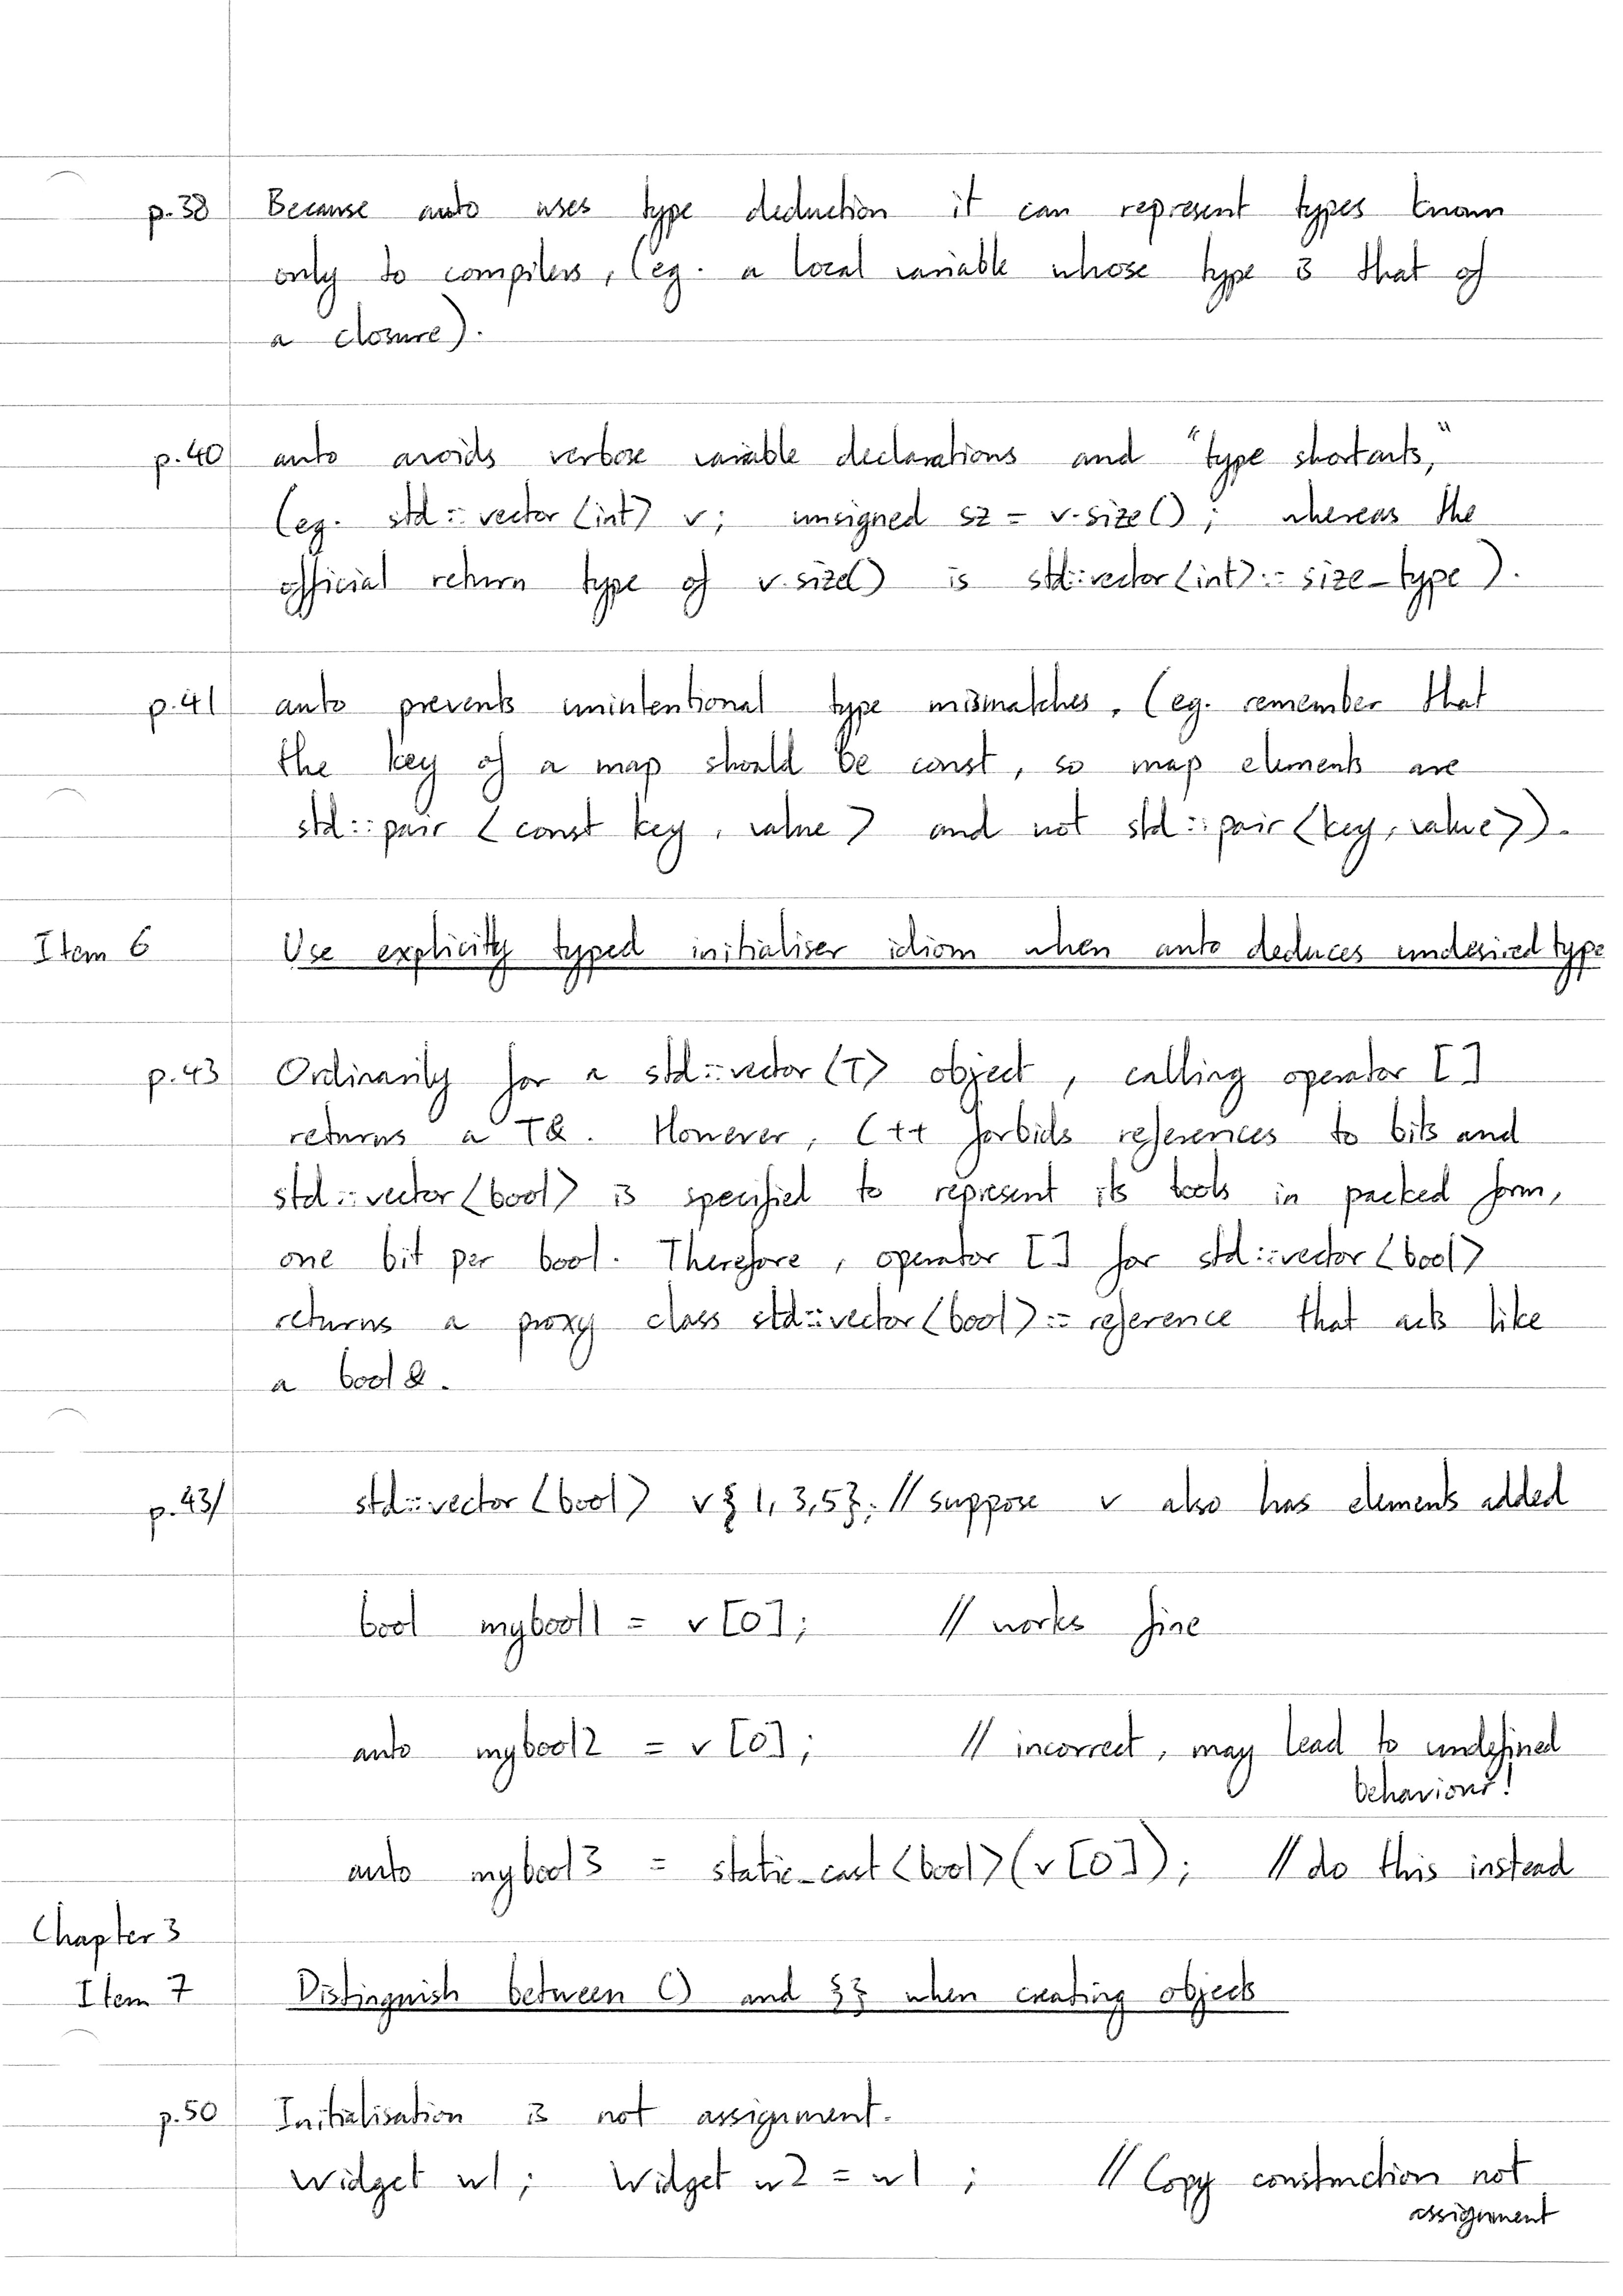 p.38 Because auto uses type deduction it can represent types known
only to compilers, (eg. a local variable whose type is that of
a closure).
p.40 auto avoids verbose variable declarations and "type shortcuts,"
(eg. std::vector<int> v; unsigned sz = v.size(); whereas the
official return type of v.size() is std::vector<int>::size_type).
p.41 auto prevents unintentional type mismatches, (eg. remember that
the key of a map should be const, so map elements are
std::pair <const key, value> and not std::pair<key, value>).
Item 6 Use explicity typed initialiser idiom when auto deduces undesired type
p.43 Ordinarily for a std::vector<T> object, calling operator []
returns a T&. However, C++ forbids references to bits and
std::vector<bool> is specified to represent its bools in packed form,
one bit per bool. Therefore, operator [] for std::vector<bool>
returns a proxy class std::vector<bool>::reference that acts like
a bool &.
p.43/ std::vector<bool> v{1, 3,5}; // suppose v also has elements added
bool mybool1 = v[0]; // works fine
auto mybool2 = v[0]; // incorrect, may lead to undefined
behaviour!
auto mybool3 = static_cast<bool>(v[0]); // do this instead
Chapter 3
Item 7 Distinguish between () and {} when creating objects
p.50 Initialisation is not assignment.
Widget w1; Widget w2 = w1; // Copy construction not
assignment